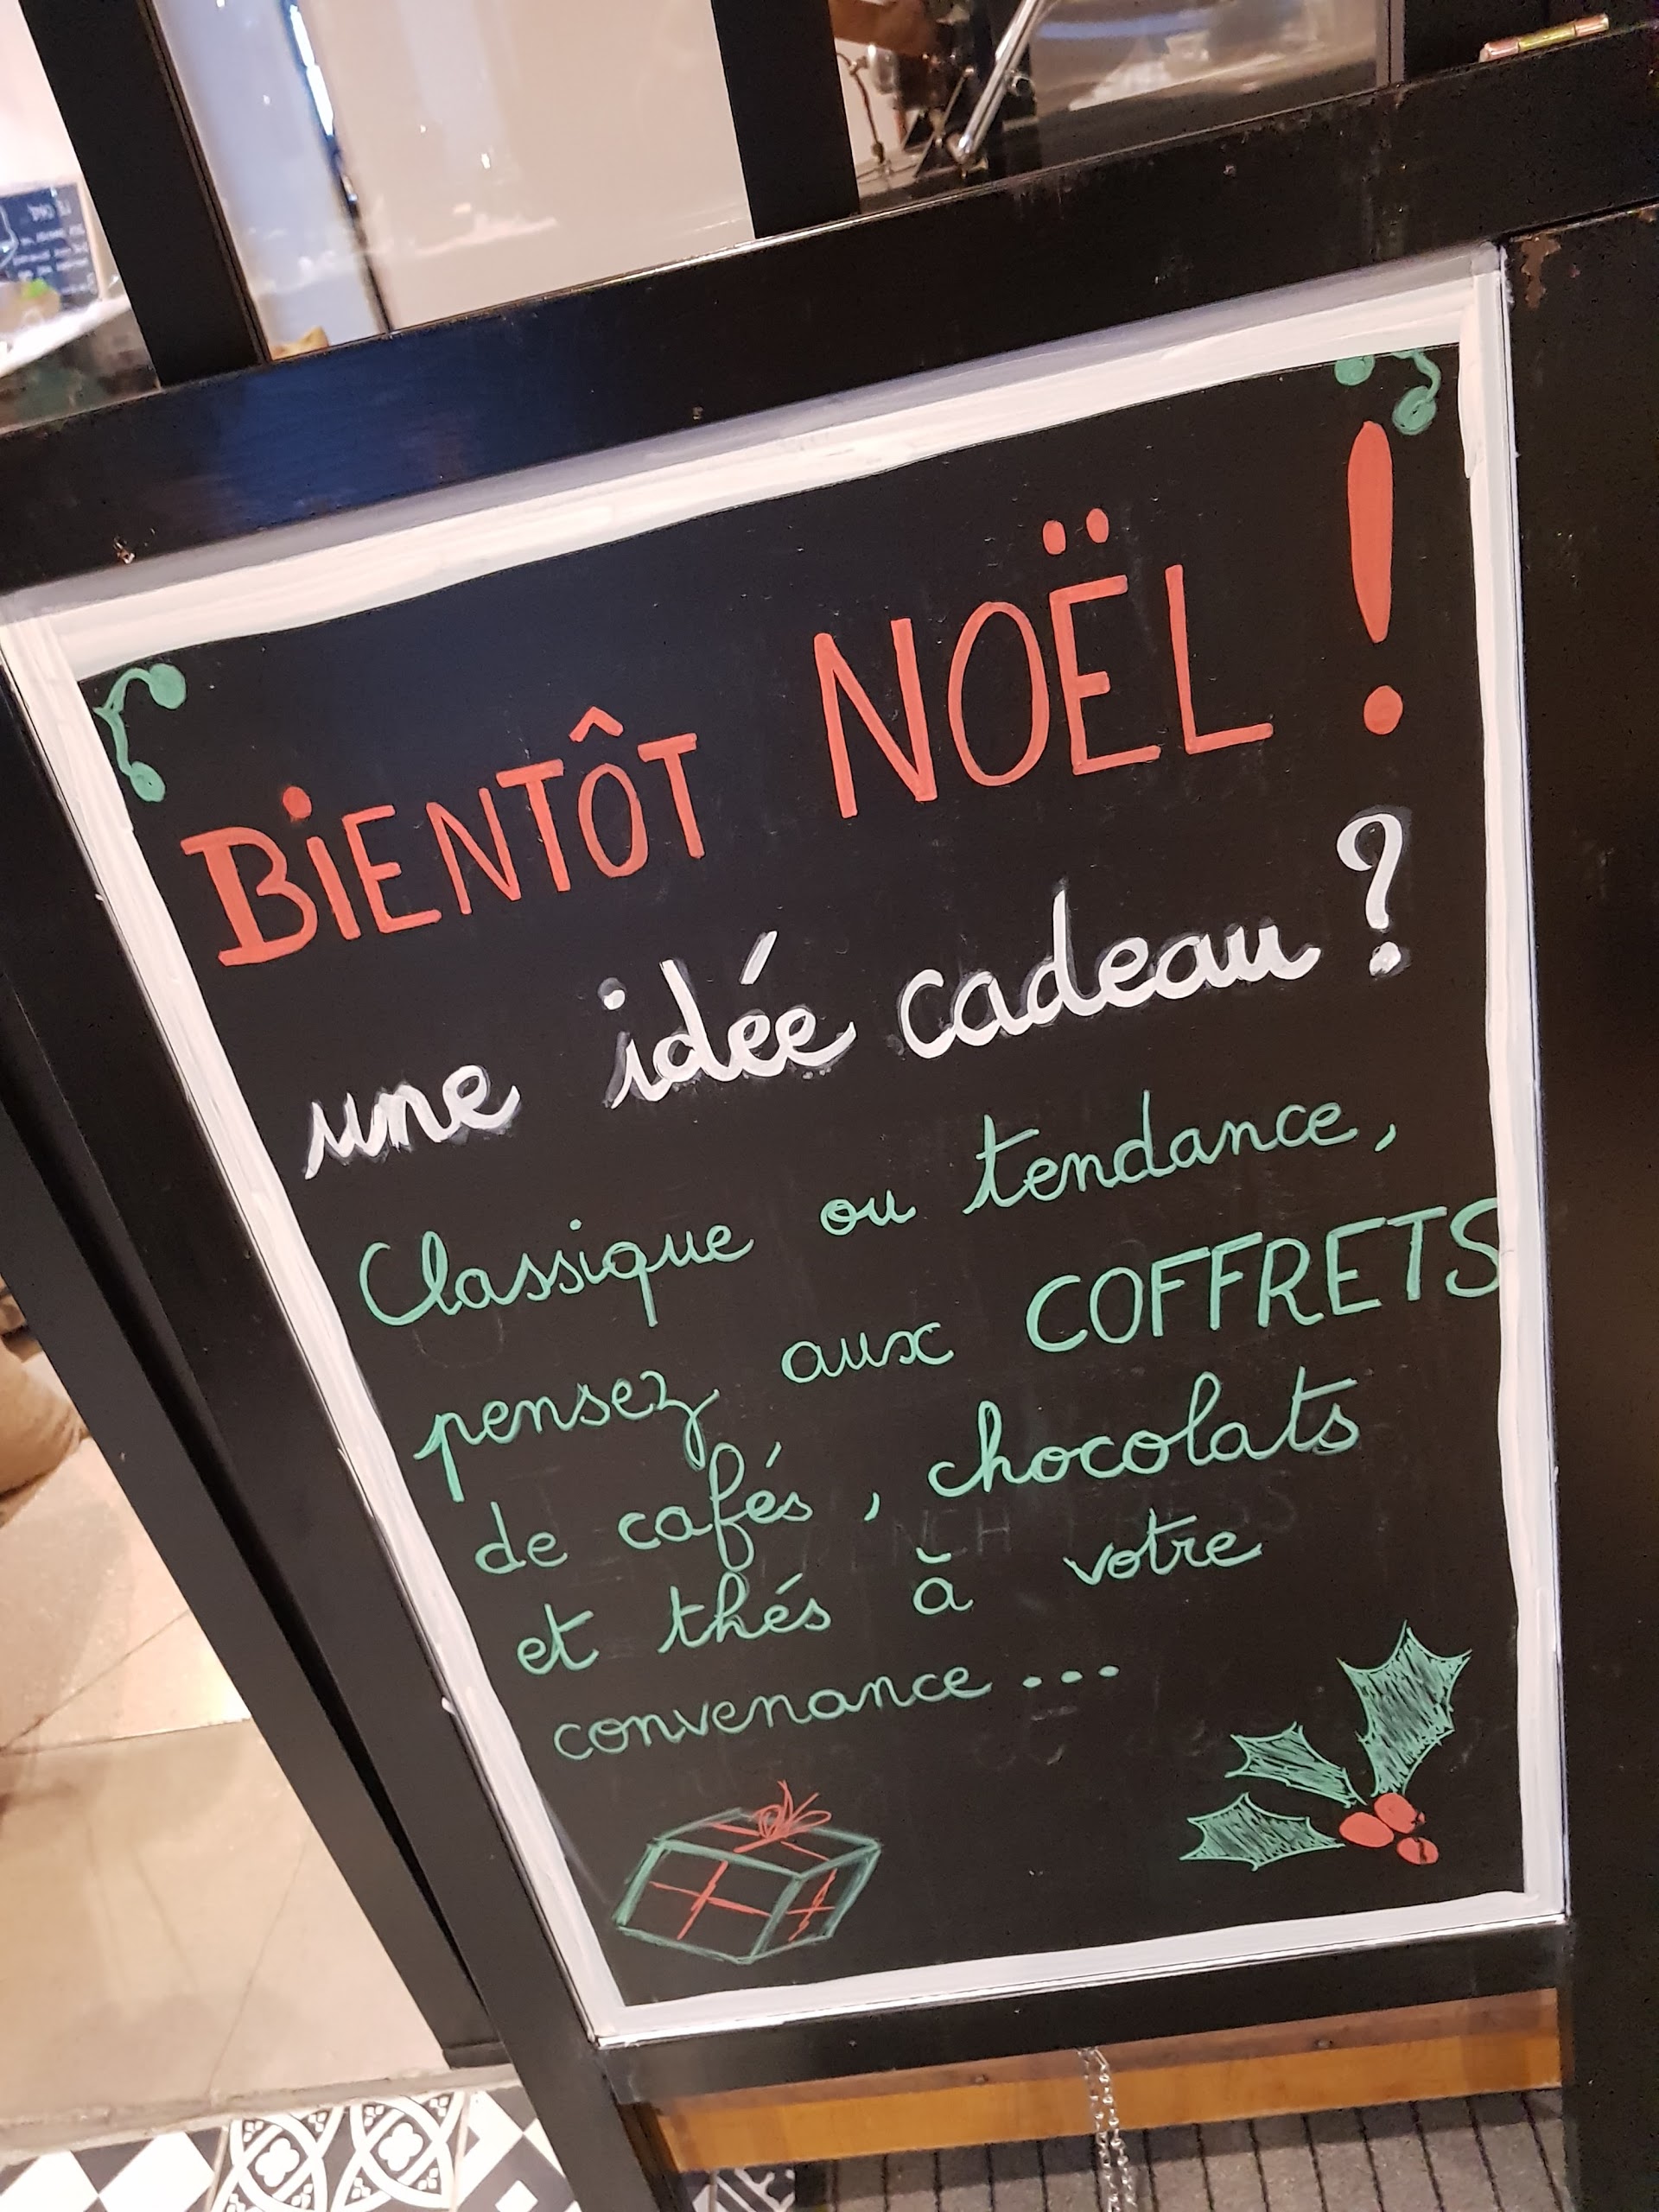 BiENTÔT NOËL !
une idée cadeau ?
Classique ou tendance,
pensez aux COFFRETS
de cafés, chocolats
et thés à votre
convenance...